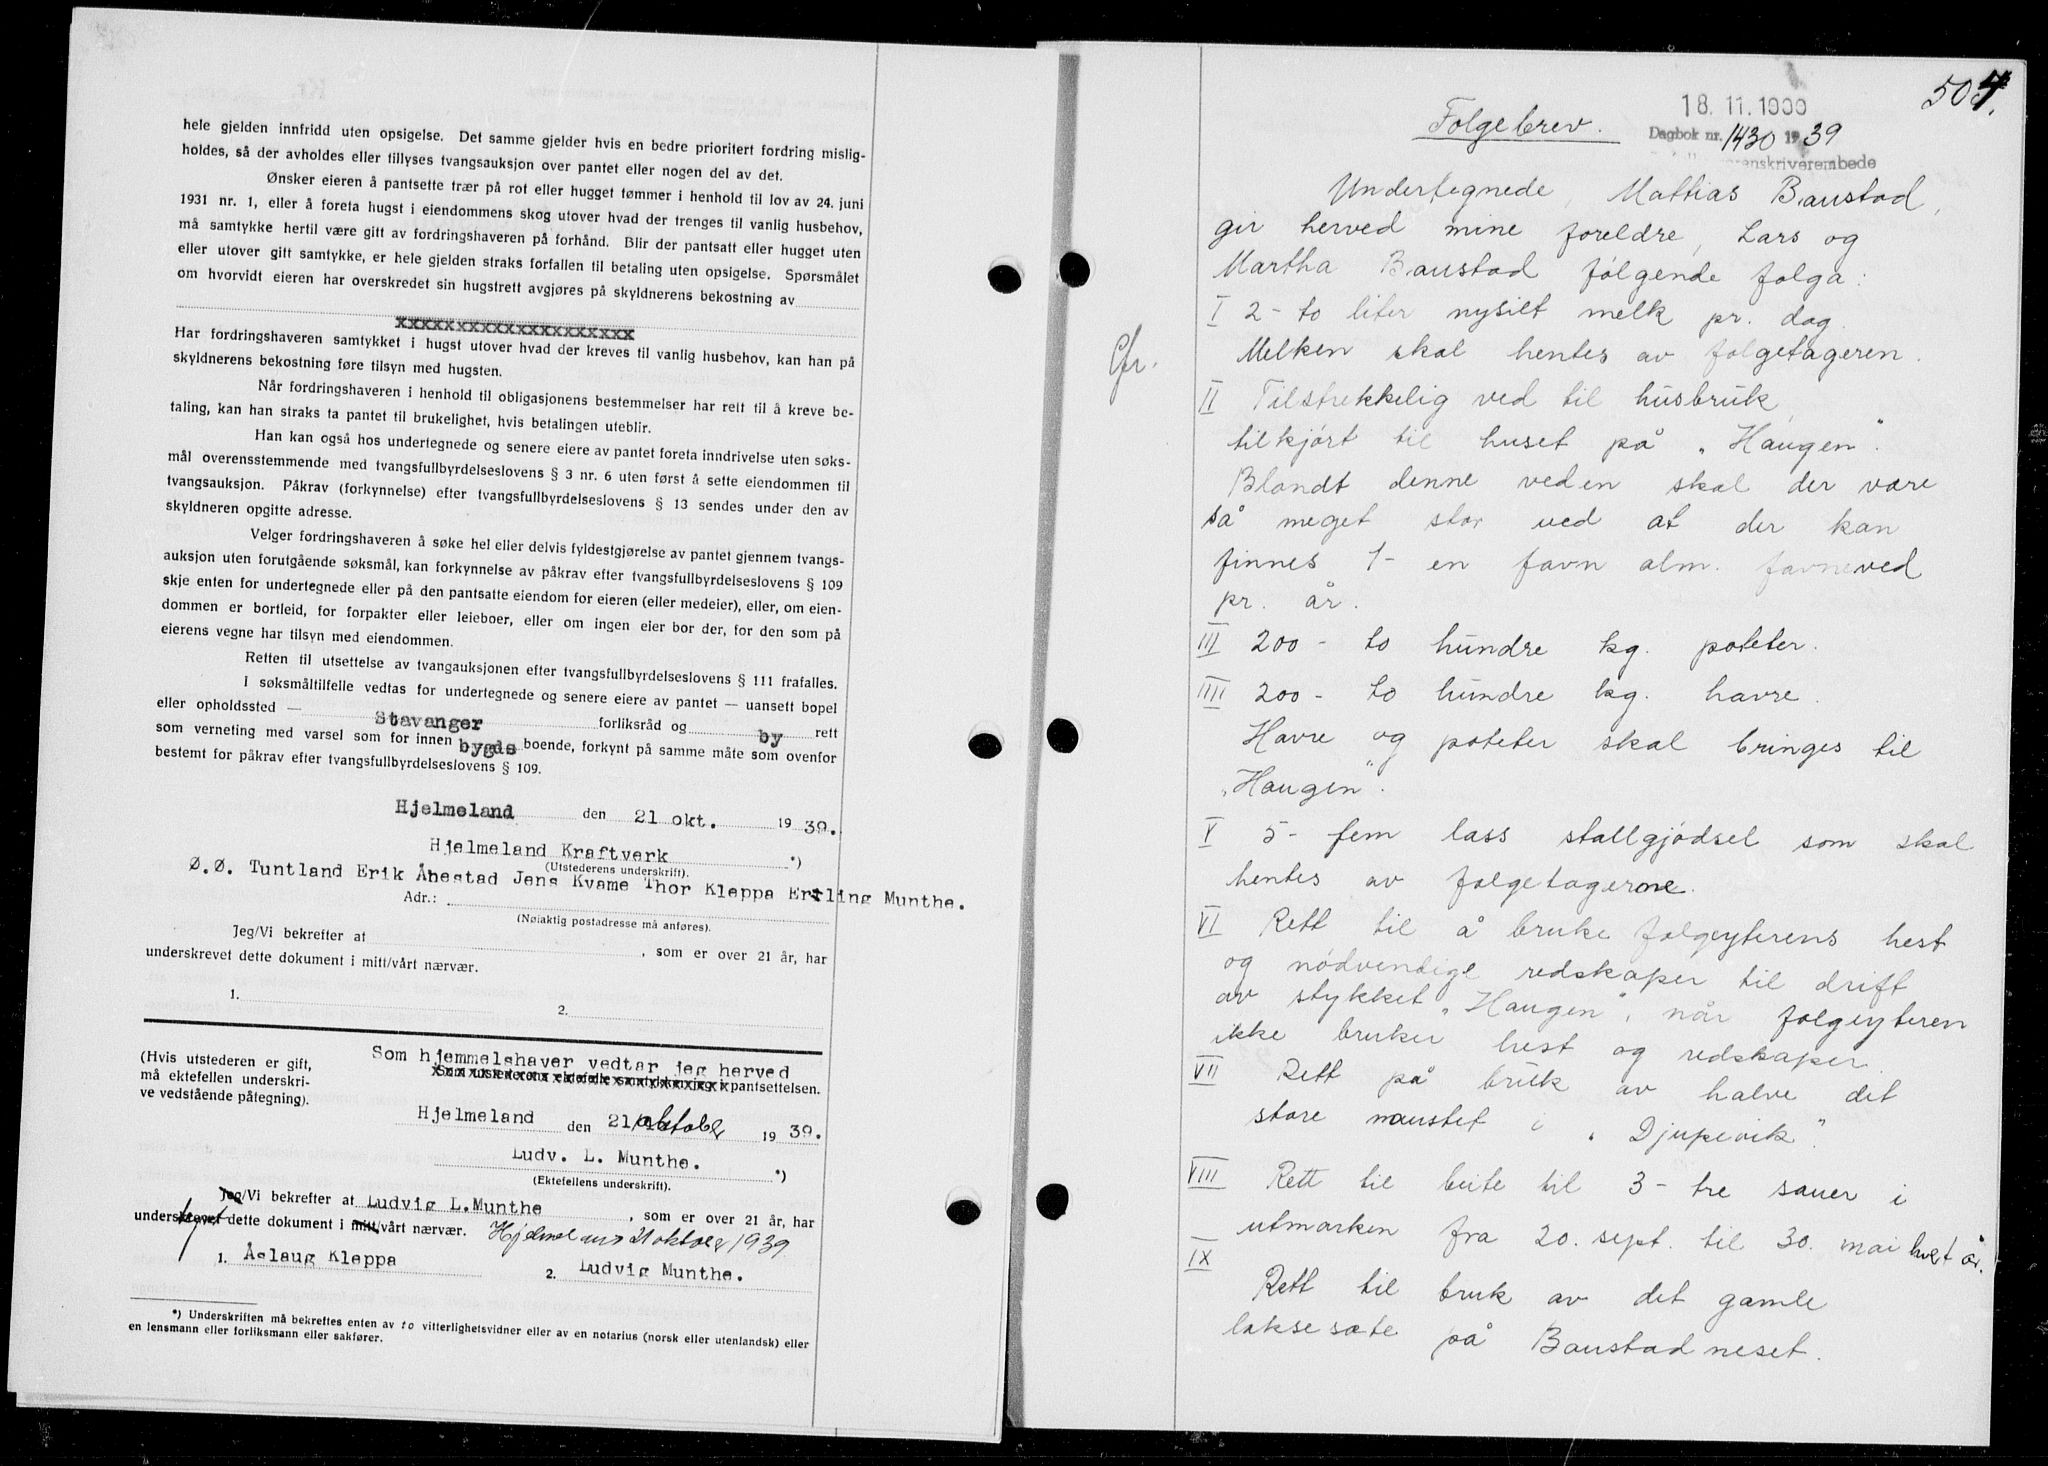 hele gjelden innfridd uten opsigelse. Det samme gjelder hvis en bedre prioritert fordring mislig-
holdes, så der avholdes eller tillyses tvangsauksjon over pantet eller nogen del av det.
Ønsker eieren å pantsette trær på rot eller hugget tømmer i henhold til lov av 24. juni
1931 nr. 1, eller å foreta hugst i eiendommens skog utover hvad der trenges til vanlig husbehov,
må samtykke hertil være gitt av fordringshaveren på forhånd. Blir der pantsatt eller hugget uten
eller utover gitt samtykke, er hele gjelden straks forfallen til betaling uten opsigelse. Spørsmålet
om hvorvidt eieren har overskredet sin hugstrett avgjøres på skyldnerens bekostning av
xxxxxxxxxxxxxxxxxxxx
Har fordringshaveren samtykket i hugst utover hvad der kreves til vanlig husbehov, kan han på
skyldnerens bekostning føre tilsyn med hugsten.
Når fordringshaveren i henhold til obligasjonens bestemmelser har rett til å kreve be-
taling, kan han straks ta pantet til brukelighet, hvis betalingen uteblir.
Han kan også hos undertegnede og senere eiere av pantet foreta inndrivelse uten søks-
mål overensstemmende med tvangsfullbyrdelseslovens § 3 nr. 6 uten først å sette eiendommen til
tvangsauksjon. Påkrav (forkynnelse) efter tvangsfullbyrdelseslovens § 13 sendes under den av
skyldneren opgitte adresse.
Velger fordringshaveren å søke hel eller delvis fyldestgjørelse av pantet gjennem tvangs-
auksjon uten forutgående søksmål, kan forkynnelse av påkrav efter tvangsfullbyrdelseslovens § 109
skje enten for undertegnede eller på den pantsatte eiendom for eieren (eller medeier), eller, om eien-
dommen er bortleid, for forpakter eller leieboer, eller om ingen eier bor der, for den som på
eierens vegne har tilsyn med eiendommen.
Retten til utsettelse av tvangauksjonen efter tvangsfullbyrdelseslovens § 111 frafalles.
I søksmåltilfelle vedtas for undertegnede og senere eiere av pantet — uansett bopel
eller opholdssted — Stavanger forliksråd og by rett
som verneting med varsel som for innen bygds boende, forkynt på samme måte som ovenfor
bestemt for påkrav efter tvangsfullbyrdelseslovens § 109.
Hjelmeland den 21 okt. 19 39.
Hjelmeland Kraftverk *)
(Utstederens underskrift).
Ø.Ø. Tuntland Erik Åhestad Jens Kvame Thor Kleppa Erling Munthe.
Adr.:
(Nøiaktig postadresse må anføres).
Jeg/Vi bekrefter at , som er over 21 år, har
underskrevet dette dokument i mitt/vårt nærvær.
1. 2.
(Hvis utstederen er gift,
må ektefellen underskri-
ve vedstående påtegning).
Som hjemmelshaver vedtar jeg herved
pantsettelsen.
Hjelmeland den 21/oktober 19 39.
Ludv. L. Munthe. *)
(Ektefellens underskrift).
Jeg/Vi bekrefter at Ludvig L.Munthe , som er over 21 år, har
underskrevet dette dokument i mitt/vårt nærvær. Hjelmeland 21 oktober 1939.
1. Åslaug Kleppa 2. Ludvig Munthe.
*) Underskriften må bekreftes enten av to vitterlighetsvidner eller av en notarius (norsk eller utenlandsk) eller
en lensmann eller forliksmann eller sakfører.
504.
18. 11. 1939
Folgebrev.
Dagbok nr. 1430 1939
renskriverembede
Undertegnede, Mattias Baustad,
gir herved mine foreldre, Lars og
Martha Baustad følgende folga:
I 2- to liter nysilt melk pr. dag.
Melken skal hentes av folgetageren.
Cfr.
II Tilstrekkelig ved til husbruk,
tilkjørt til huset på "Haugen".
Blandt denne veden skal der være
så meget stor ved at der kan
finnes 1- en favn alm. favneved
pr. år.
III 200 - to hundre kg. poteter.
IIII 200 - to hundre kg. havre.
Havre og poteter skal bringes til
"Haugen".
V 5- fem lass stallgjødsel som skal
hentes av folgetagerne.
VI Rett til å bruke folgeyterens hest
og nødvendige redskaper til drift
av stykket "Haugen", når folgeyteren
ikke bruker hest og redskaper.
VII Rett på bruk av halve det
store naustet i "Djupevik".
VIII Rett til beite til 3- tre sauer i
utmarken fra 20. sept. til 30. mai hvert år.
IX Rett til bruk av det gamle
laksesæte på Baustadneset.